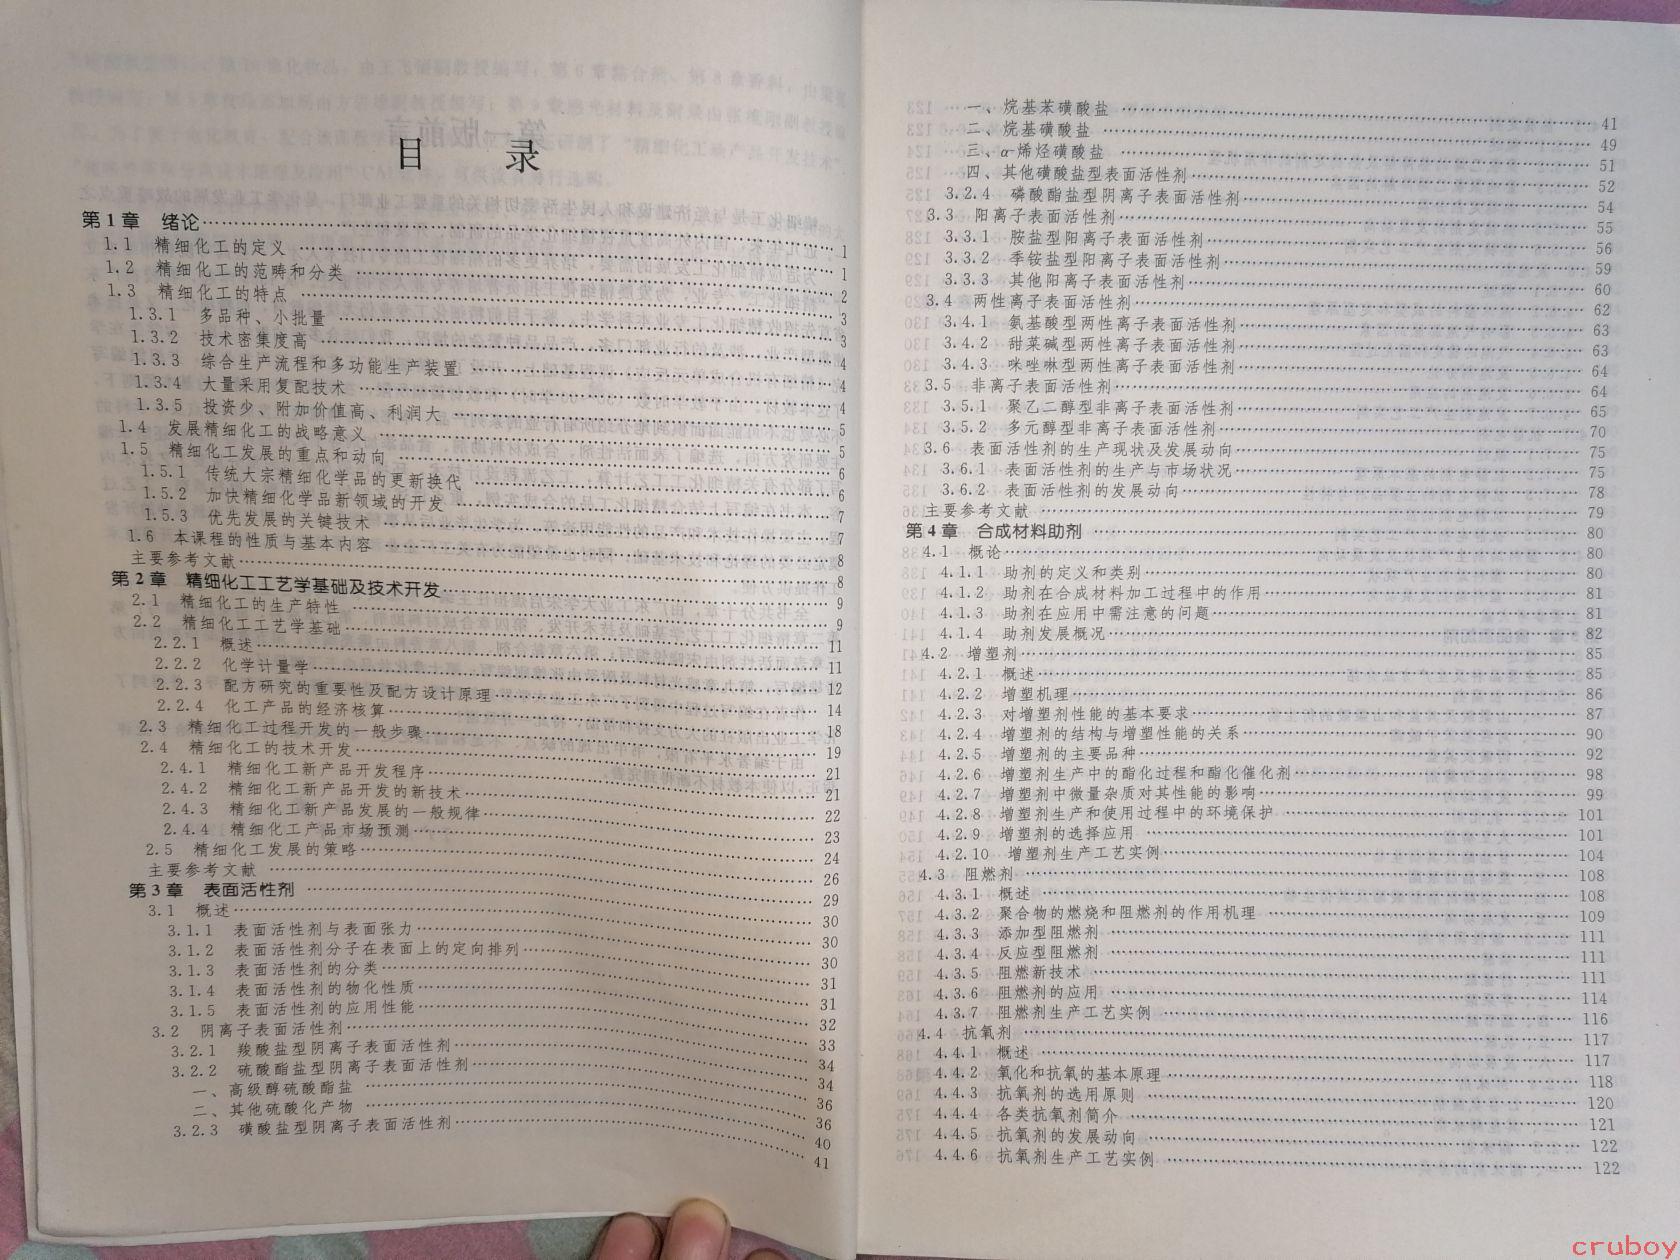 目 录
第1章 绪论 …… 1
1.1 精细化工的定义 …… 1
1.2 精细化工的范畴和分类 …… 2
1.3 精细化工的特点 …… 3
1.3.1 多品种、小批量 …… 3
1.3.2 技术密集度高 …… 4
1.3.3 综合生产流程和多功能生产装置 …… 4
1.3.4 大量采用复配技术 …… 4
1.3.5 投资少、附加价值高、利润大 …… 5
1.4 发展精细化工的战略意义 …… 5
1.5 精细化工发展的重点和动向 …… 6
1.5.1 传统大宗精细化学品的更新换代 …… 6
1.5.2 加快精细化学品新领域的开发 …… 7
1.5.3 优先发展的关键技术 …… 7
1.6 本课程的性质与基本内容 …… 8
主要参考文献 …… 8
第2章 精细化工工艺学基础及技术开发 …… 9
2.1 精细化工的生产特性 …… 9
2.2 精细化工工艺学基础 …… 11
2.2.1 概述 …… 11
2.2.2 化学计量学 …… 12
2.2.3 配方研究的重要性及配方设计原理 …… 14
2.2.4 化工产品的经济核算 …… 18
2.3 精细化工过程开发的一般步骤 …… 19
2.4 精细化工的技术开发 …… 21
2.4.1 精细化工新产品开发程序 …… 21
2.4.2 精细化工新产品开发的新技术 …… 22
2.4.3 精细化工新产品发展的一般规律 …… 23
2.4.4 精细化工产品市场预测 …… 24
2.5 精细化工发展的策略 …… 26
主要参考文献 …… 29
第3章 表面活性剂 …… 30
3.1 概述 …… 30
3.1.1 表面活性剂与表面张力 …… 30
3.1.2 表面活性剂分子在表面上的定向排列 …… 31
3.1.3 表面活性剂的分类 …… 31
3.1.4 表面活性剂的物化性质 …… 32
3.1.5 表面活性剂的应用性能 …… 33
3.2 阴离子表面活性剂 …… 34
3.2.1 羧酸盐型阴离子表面活性剂 …… 34
3.2.2 硫酸酯盐型阴离子表面活性剂 …… 36
一、高级醇硫酸酯盐 …… 36
二、其他硫酸化产物 …… 40
3.2.3 磺酸盐型阴离子表面活性剂 …… 41
一、烷基苯磺酸盐 …… 41
二、烷基磺酸盐 …… 49
三、α-烯烃磺酸盐 …… 51
四、其他磺酸盐型表面活性剂 …… 52
3.2.4 磷酸酯盐型阴离子表面活性剂 …… 54
3.3 阳离子表面活性剂 …… 55
3.3.1 胺盐型阳离子表面活性剂 …… 56
3.3.2 季铵盐型阳离子表面活性剂 …… 59
3.3.3 其他阳离子表面活性剂 …… 60
3.4 两性离子表面活性剂 …… 62
3.4.1 氨基酸型两性离子表面活性剂 …… 63
3.4.2 甜菜碱型两性离子表面活性剂 …… 63
3.4.3 咪唑啉型两性离子表面活性剂 …… 64
3.5 非离子表面活性剂 …… 64
3.5.1 聚乙二醇型非离子表面活性剂 …… 65
3.5.2 多元醇型非离子表面活性剂 …… 70
3.6 表面活性剂的生产现状及发展动向 …… 75
3.6.1 表面活性剂的生产与市场状况 …… 75
3.6.2 表面活性剂的发展动向 …… 78
主要参考文献 …… 79
第4章 合成材料助剂 …… 80
4.1 概论 …… 80
4.1.1 助剂的定义和类别 …… 80
4.1.2 助剂在合成材料加工过程中的作用 …… 81
4.1.3 助剂在应用中需注意的问题 …… 81
4.1.4 助剂发展概况 …… 82
4.2 增塑剂 …… 85
4.2.1 概述 …… 85
4.2.2 增塑机理 …… 86
4.2.3 对增塑剂性能的基本要求 …… 87
4.2.4 增塑剂的结构与增塑性能的关系 …… 90
4.2.5 增塑剂的主要品种 …… 92
4.2.6 增塑剂生产中的酯化过程和酯化催化剂 …… 98
4.2.7 增塑剂中微量杂质对其性能的影响 …… 99
4.2.8 增塑剂生产和使用过程中的环境保护 …… 101
4.2.9 增塑剂的选择应用 …… 101
4.2.10 增塑剂生产工艺实例 …… 104
4.3 阻燃剂 …… 108
4.3.1 概述 …… 108
4.3.2 聚合物的燃烧和阻燃剂的作用机理 …… 109
4.3.3 添加型阻燃剂 …… 111
4.3.4 反应型阻燃剂 …… 111
4.3.5 阻燃新技术 …… 111
4.3.6 阻燃剂的应用 …… 114
4.3.7 阻燃剂生产工艺实例 …… 116
4.4 抗氧剂 …… 117
4.4.1 概述 …… 117
4.4.2 氧化和抗氧的基本原理 …… 118
4.4.3 抗氧剂的选用原则 …… 120
4.4.4 各类抗氧剂简介 …… 121
4.4.5 抗氧剂的发展动向 …… 122
4.4.6 抗氧剂生产工艺实例 …… 122
cruboy